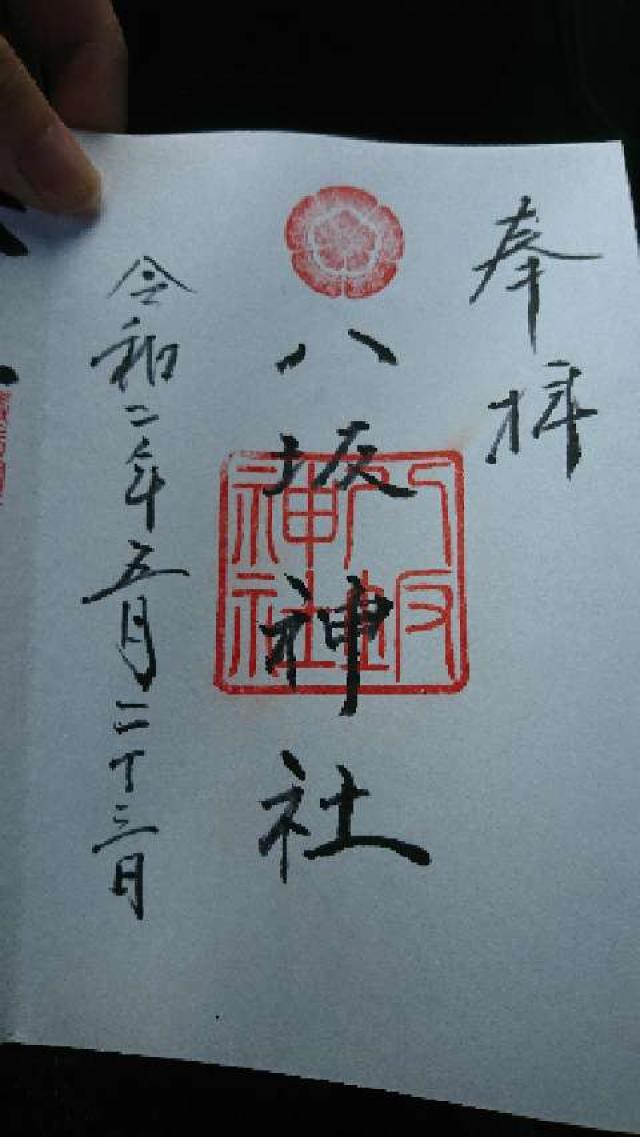 奉拝
八坂神社
令和二年五月二十三日